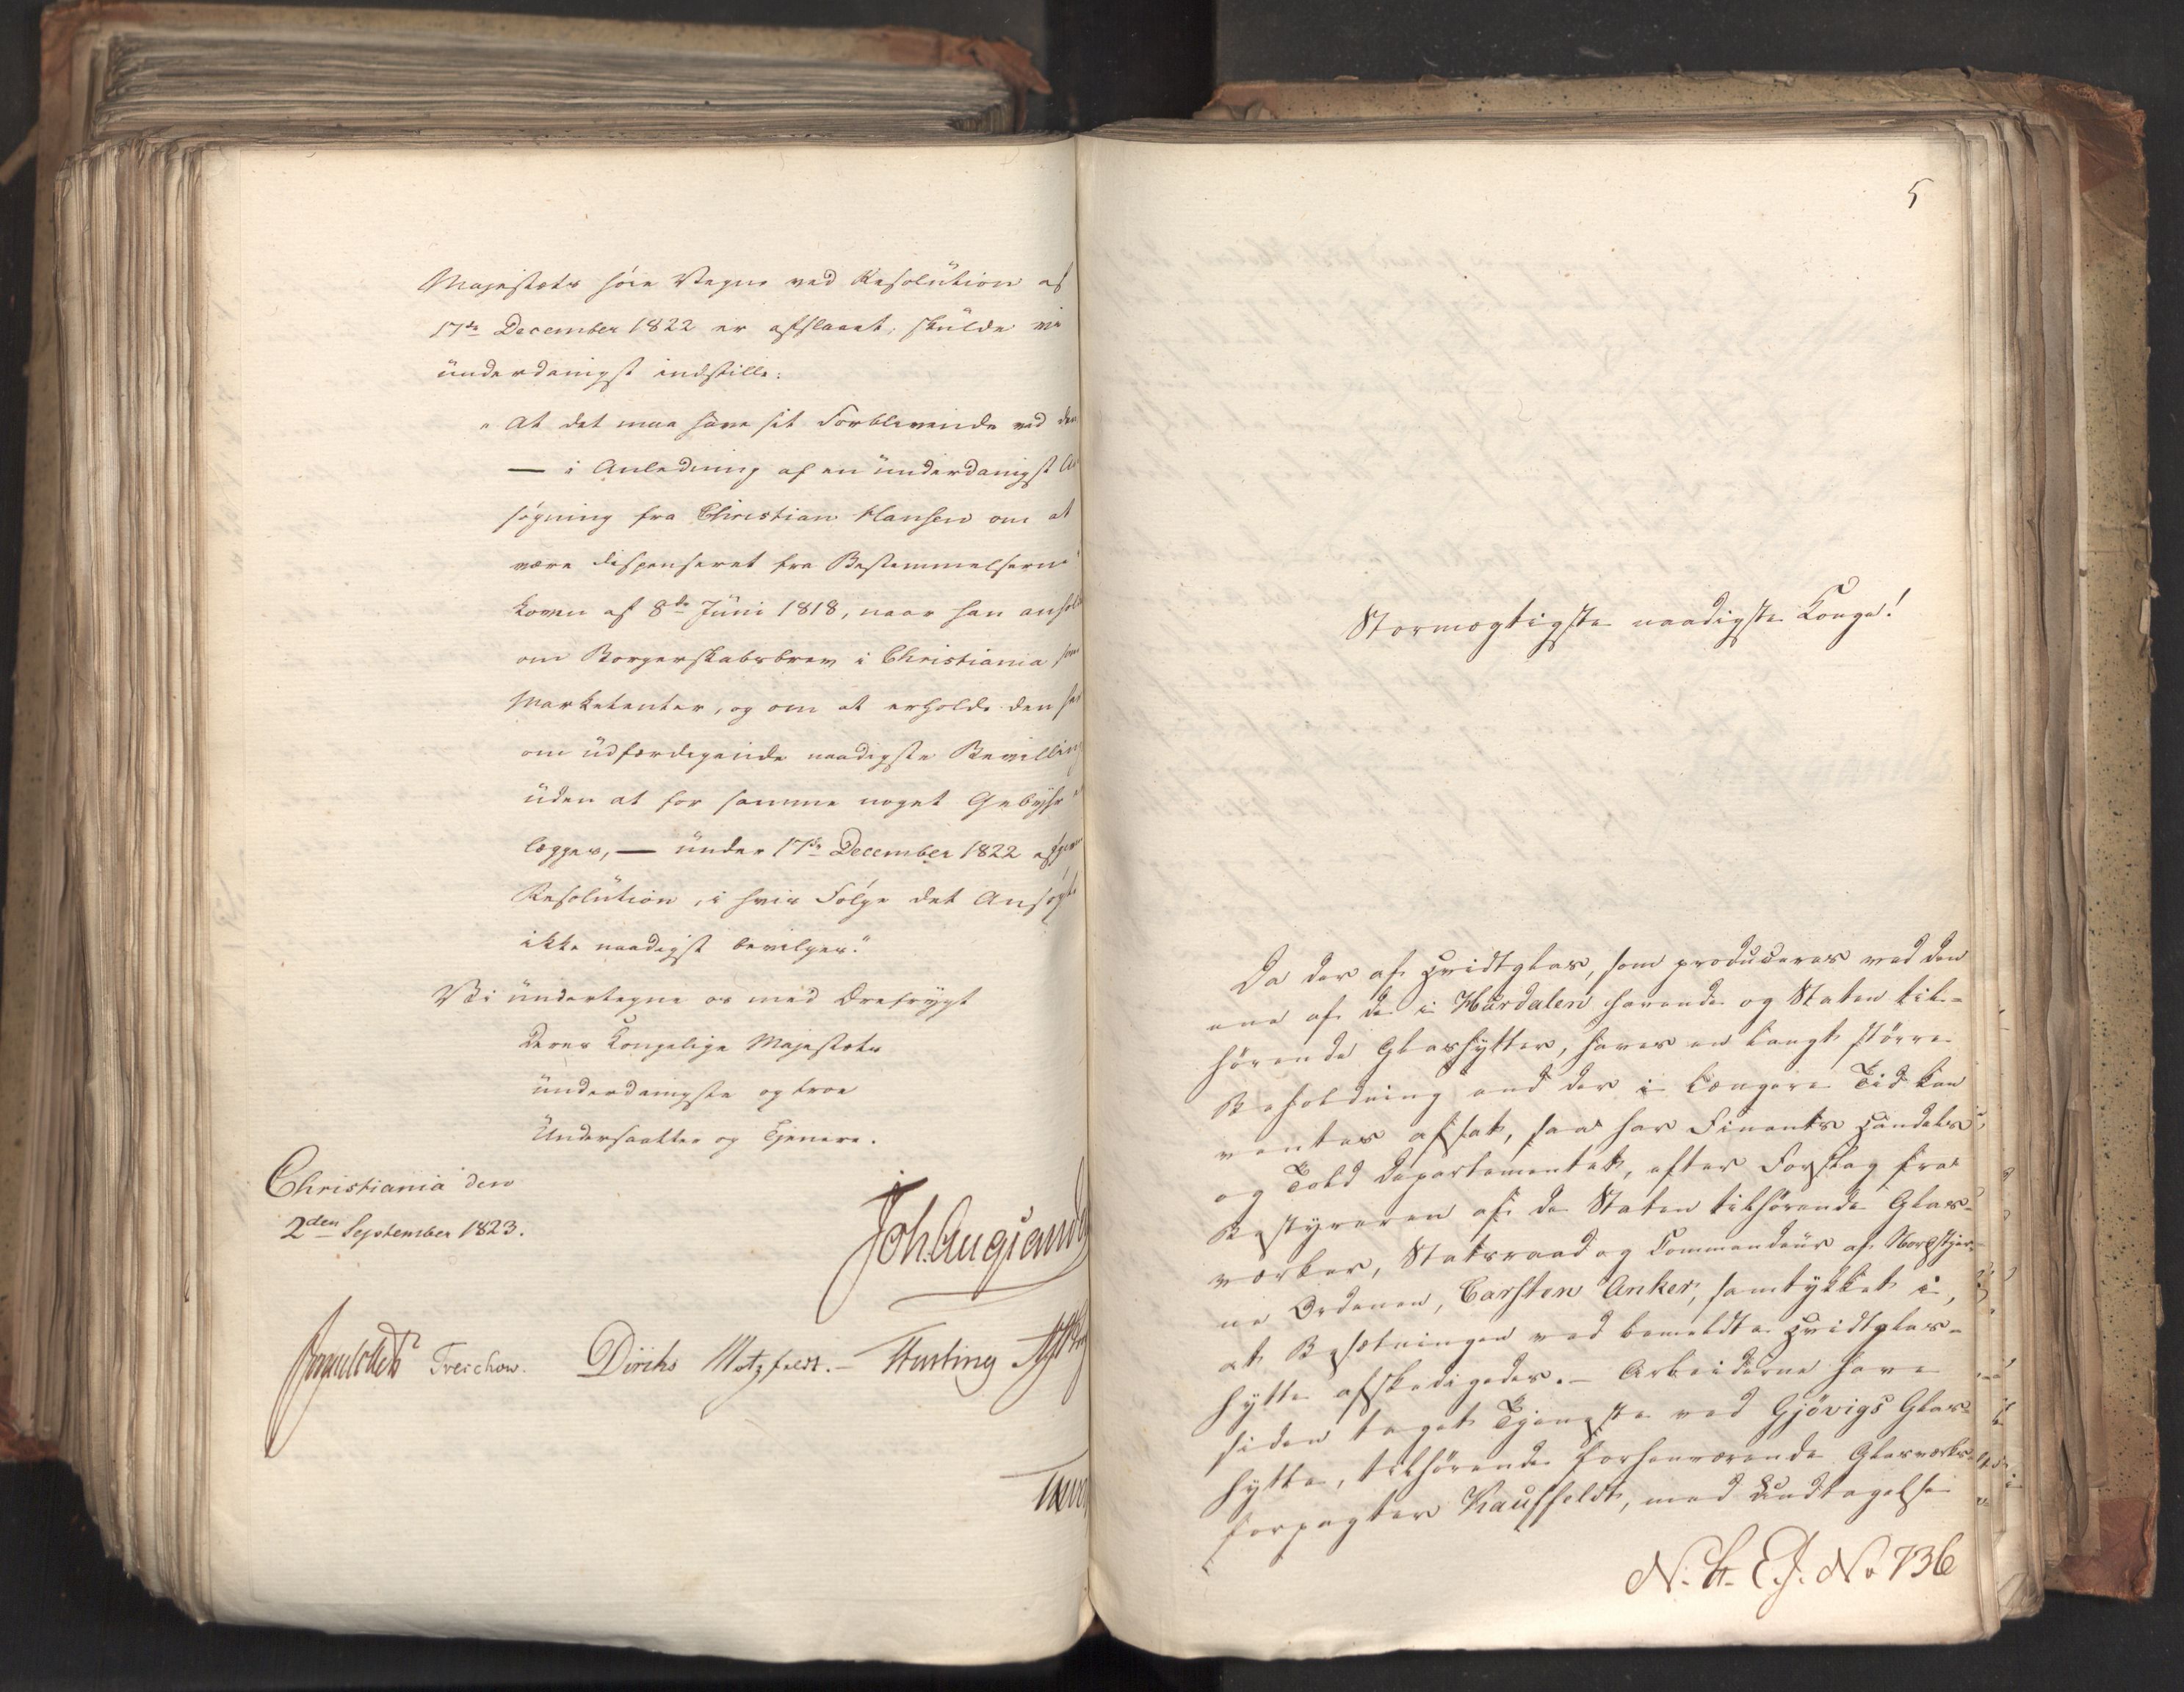 Majestæts høie Vegne ved Resolution af
17de December 1822 er afslaaet, skulde vi
underdanigst indstille:
"At det maa have sit Forblivende ved den
— i Anledning af en underdanigst An
søgning fra Christian Hansen om at
være dispenseret fra Bestemmelserne i
Loven af 8de Juni 1818, naar han anholdt
om Borgerskabsbrev i Christiania som
Marketenter, og om at erholde den her
om udfærdigende naadigste Bevilling
uden at for samme noget Gebyhr er
lægges, — under 17de December 1822 afgivne
Resolution, i hvis Følge det Ansøgte
ikke naadigst bevilges."
Vi undertegne os med Ærefrygt
Deres Kongelige Majestæts
underdanigste og troe
Undersaatter og Tjenere.
Christiania den
2den September 1823.
Joh. Aug. Sand
Sommerhielm Treschow. Diriks Motzfeldt. — Fasting
5
Stormægtigste naadigste Konge!
Da der af Hvidtglas, som produceres ved den
ene af de i Hurdalen havende og Staten til-
hørende Glashytter, haves en langt større
Beholdning end der i længere Tid kan
ventes afsat, saa har Finants Handels
og Told Departementet, efter Forslag fra
Bestyreren af de Staten tilhørende Glas-
værker, Statsraad og Commandeur af Nordstjer-
ne Ordenen, Carsten Anker, samtykket i,
at Besætningen ved bemeldte Hvidtglas-
hytte afskedigedes. — Arbeiderne have
siden taget Tjeneste ved Gjövigs Glas-
hytte, tilhørende forhenværende Glasværks-
forpagter Kauffeldt, med Undtagelse
No 736